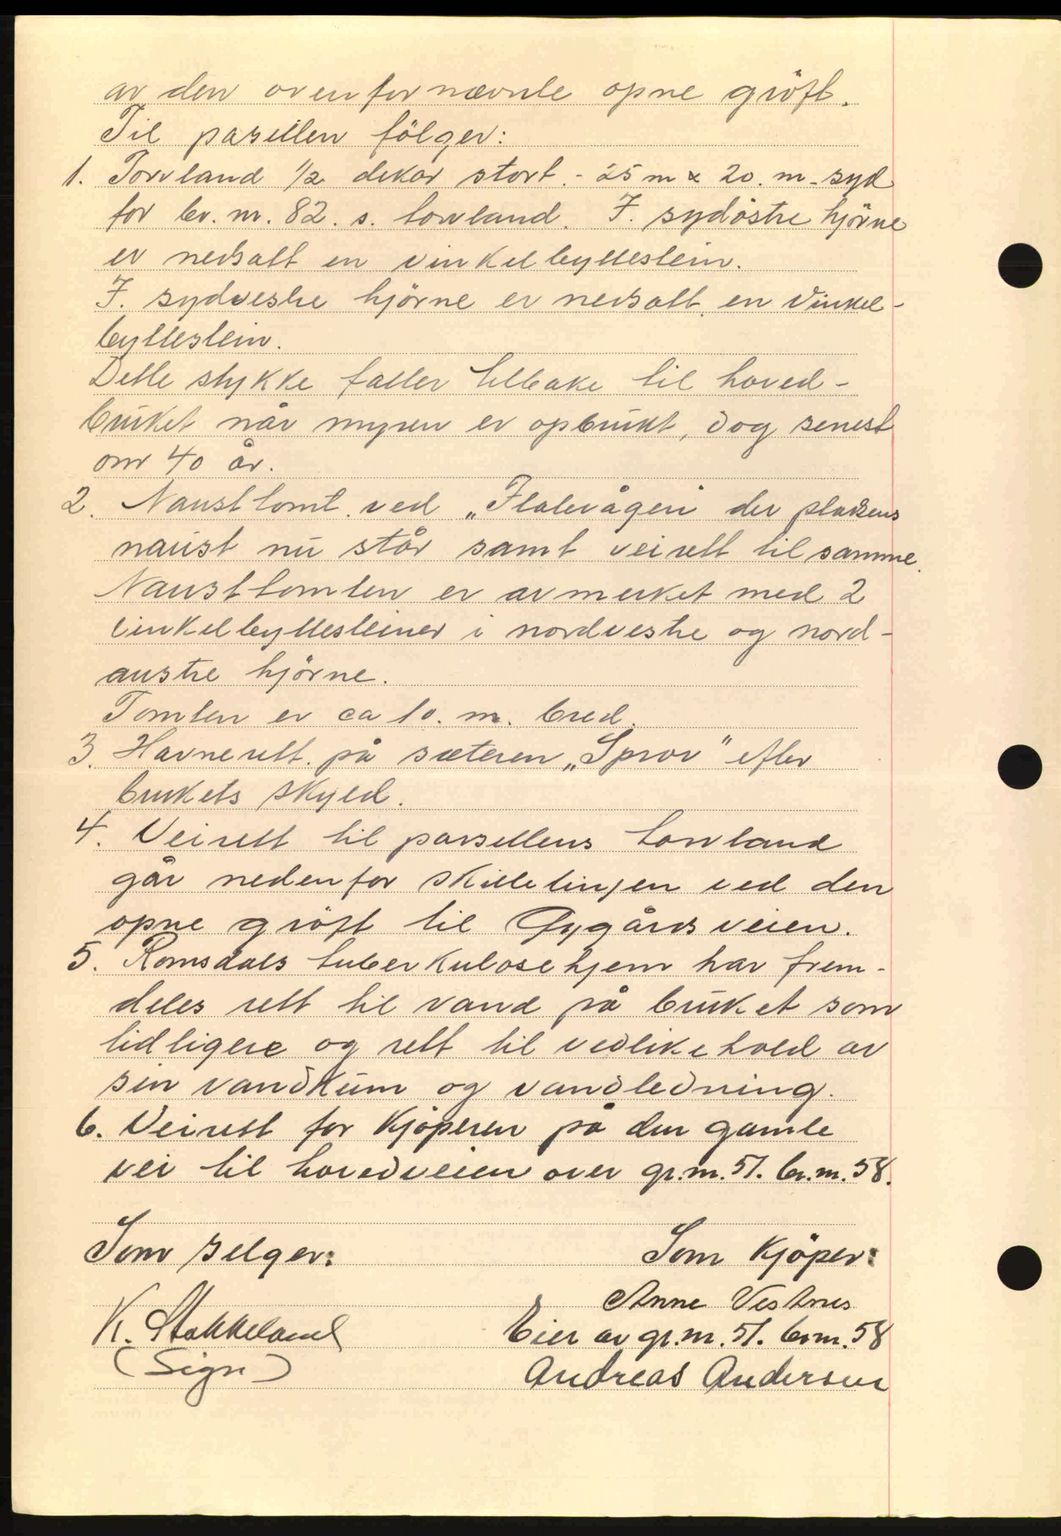 av den ovenfor nævnte opne gröft.
Til parsellen fölger:
1. Torvland 1/2 dekar stort. - 25 m x 20. m. syd
for br. nr. 82. s. torvland. I. sydöstre hjörne
er nedsatt en vinkelbyttestein.
I. sydvestre hjörne er nedsatt en vinkel-
byttestein.
Dette stykke faller tilbake til hoved-
bruket når myren er opbrukt, dog senest
om 40 år.
2. Nausttomt ved „Flatevågen der plassens
naust nu står samt veirett til samme.
Nausttomten er avmerket med 2
vinkelbyttesteiner i nordvestre og nord-
austre hjörne.
Tomten er ca 10. m. bred.
3. Havnerett på sæteren „Sprov" efter
brukets skyld.
4. Veirett til parsellens torvland
går nedenfor skillelinjen ved den
opne gröft til Öygårdsveien.
5. Romsdals tuberkulosehjem har frem-
deles rett til vand på bruket som
tidligere og rett til vedlikehold av
sin vandkum og vandledning.
6. Veirett for kjöperen på den gamle
vei til hovedveien over gr. nr. 51. br. nr. 58.
Som selger: Som kjöper:
Anne Vestnes
K. Stokkeland Eier av gr. nr. 51. br nr. 58
(Sign) Andreas Andersen